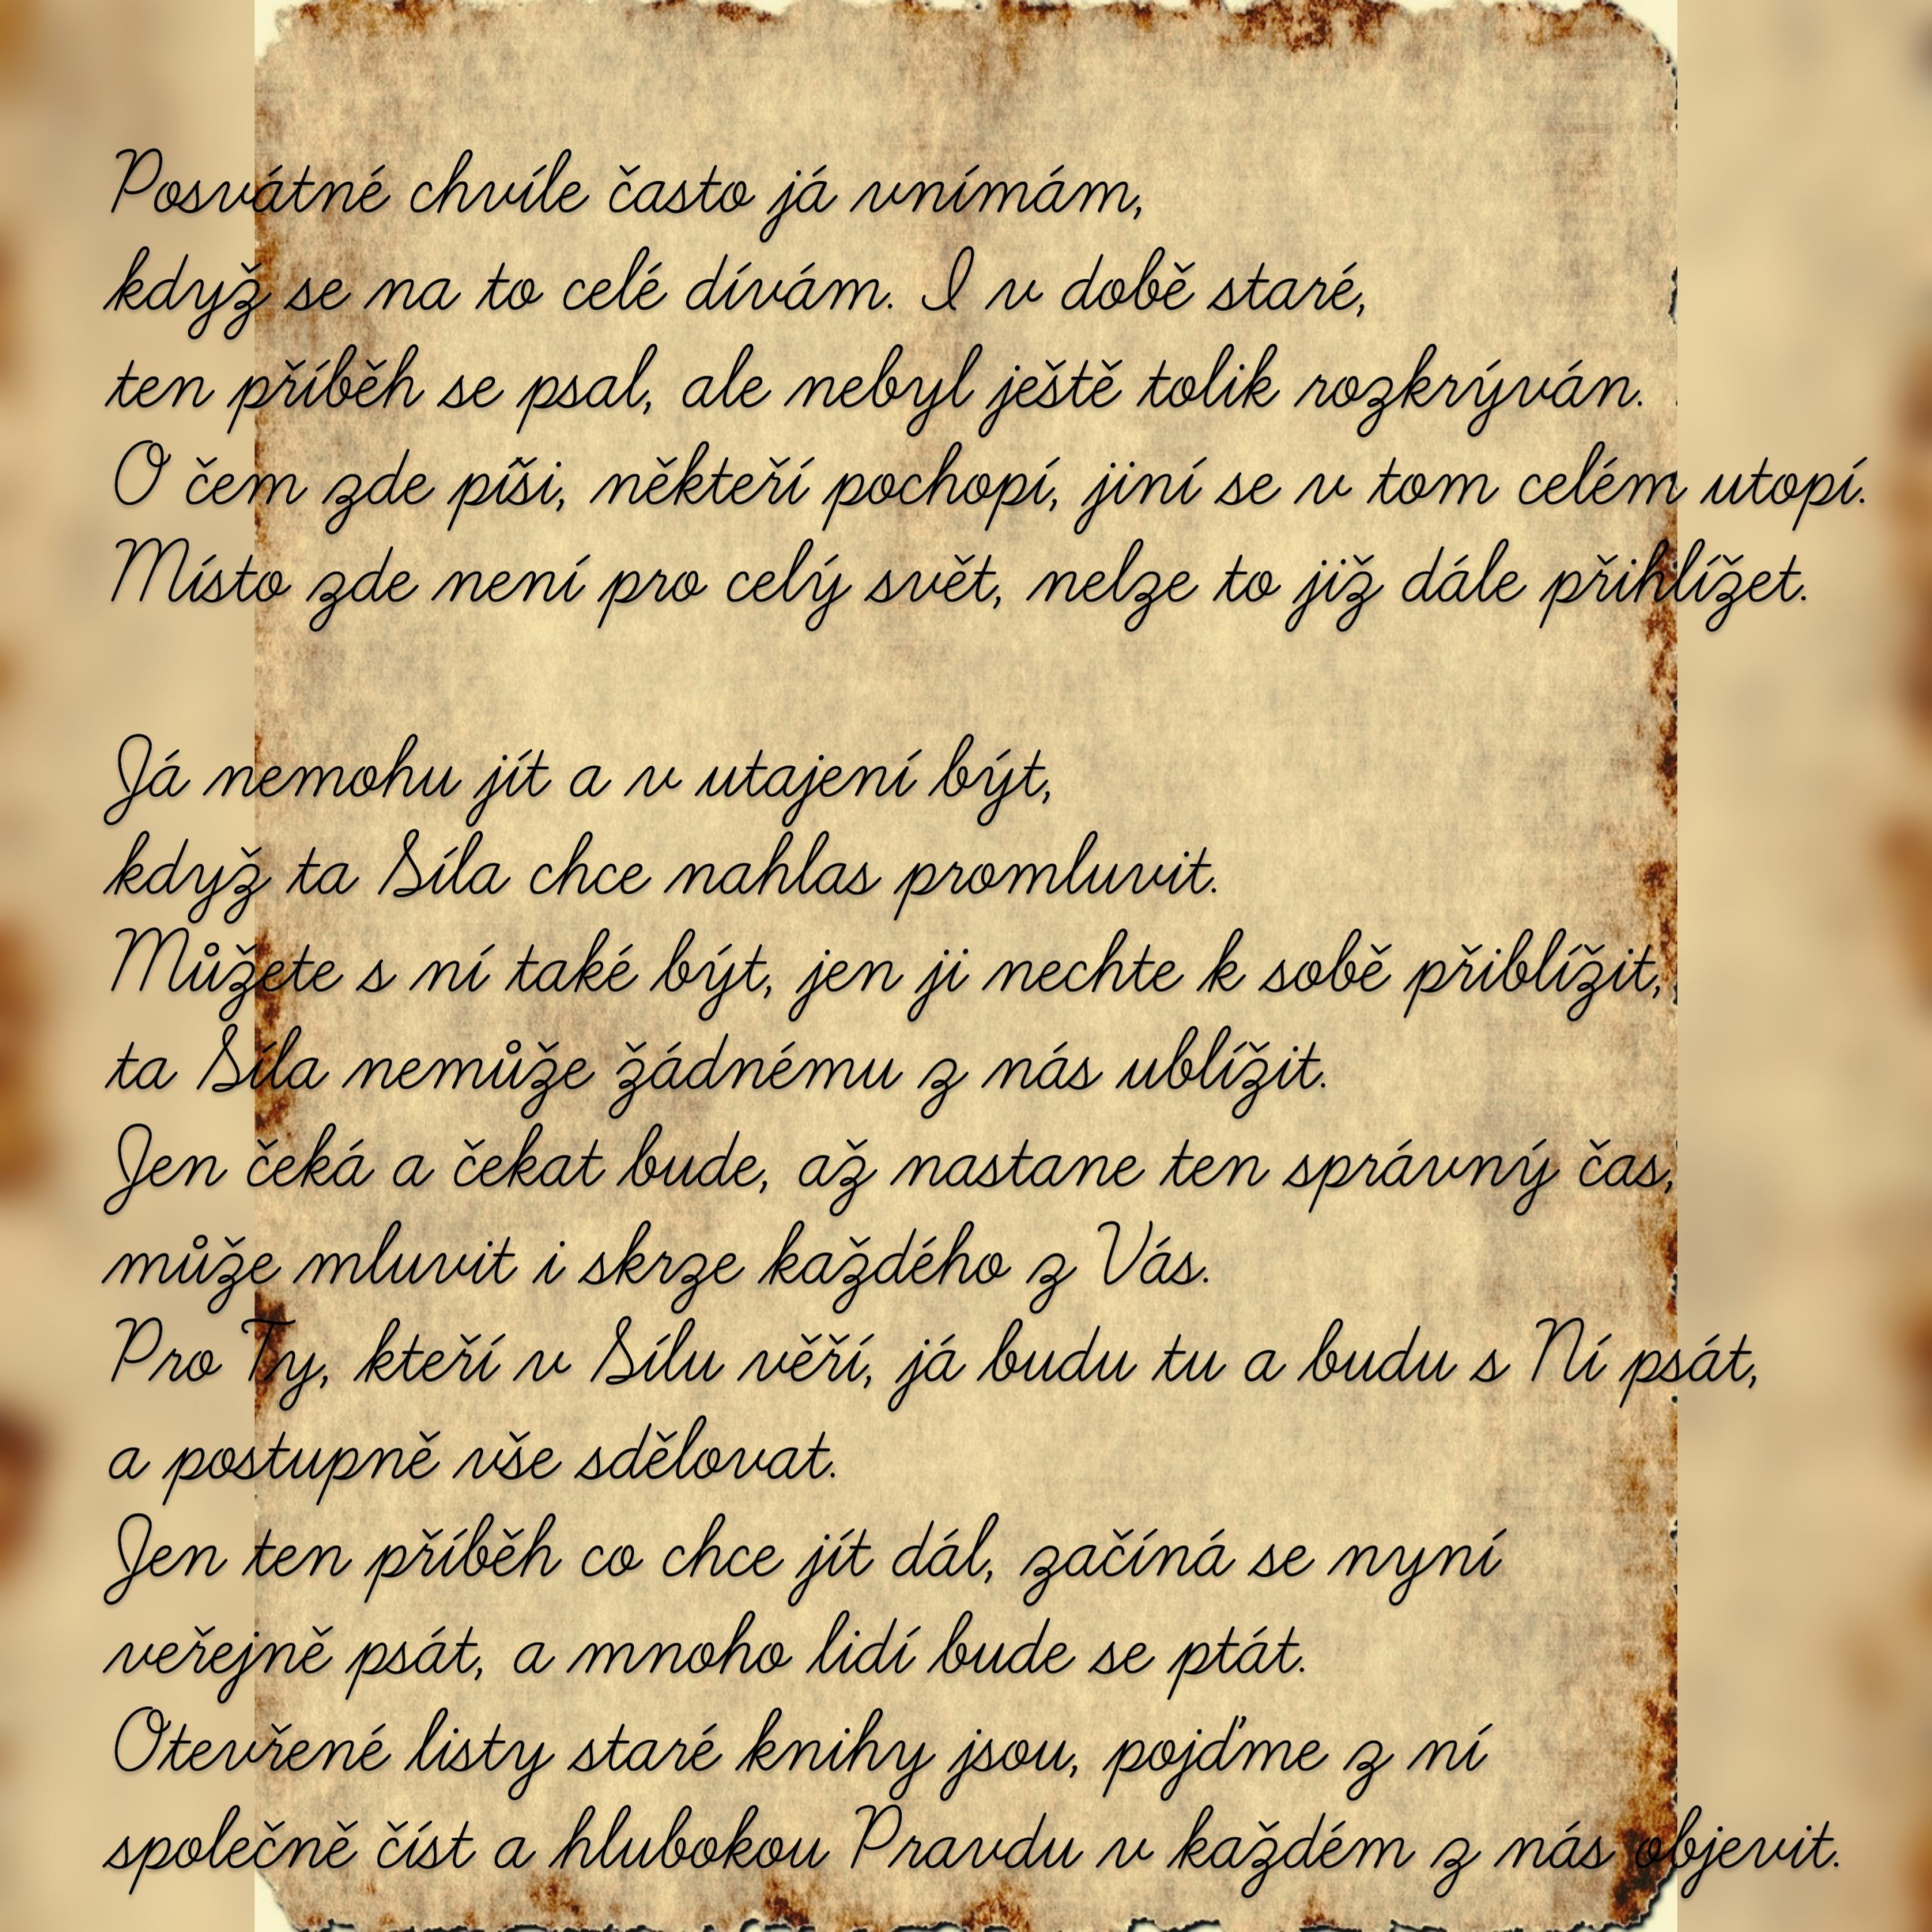 Posvátné chvíle často já vnímám,
když se na to celé dívám. I v době staré,
ten příběh se psal, ale nebyl ještě tolik rozkrýván.
O čem zde píši, někteří pochopí, jiní se v tom celém utopí.
Místo zde není pro celý svět, nelze to již dále přihlížet.
Já nemohu jít a v utajení být,
když ta Síla chce nahlas promluvit.
Můžete s ní také být, jen ji nechte k sobě přiblížit,
ta Síla nemůže žádnému z nás ublížit.
Jen čeká a čekat bude, až nastane ten správný čas,
může mluvit i skrze každého z Vás.
Pro Ty, kteří v Sílu věří, já budu tu a budu s Ní psát,
a postupně vše sdělovat.
Jen ten příběh co chce jít dál, začíná se nyní
veřejně psát, a mnoho lidí bude se ptát.
Otevřené listy staré knihy jsou, pojďme z ní
společně číst a hlubokou Pravdu v každém z nás objevit.